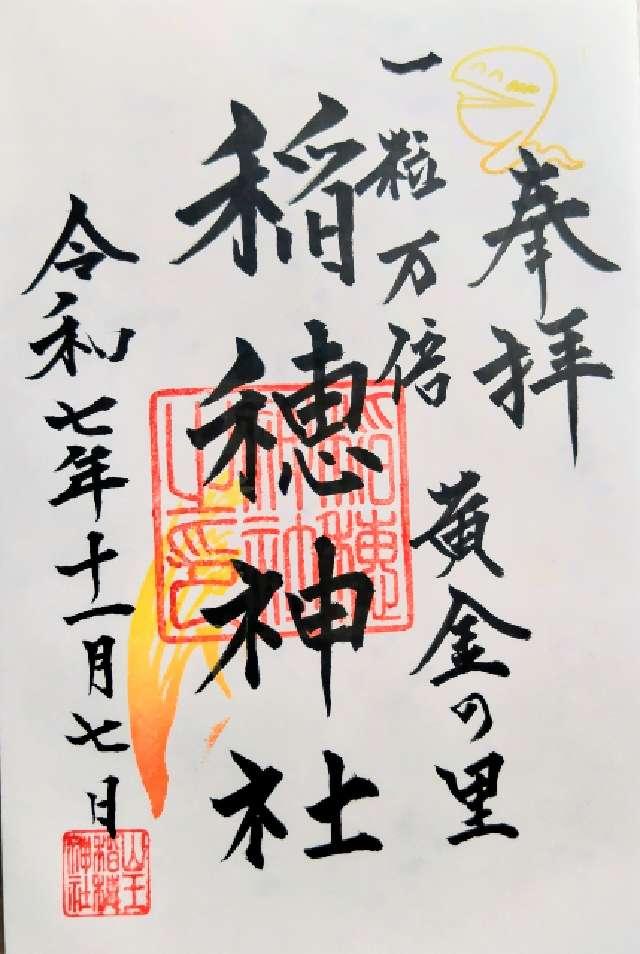 奉拝
黄金の里
一粒万倍
稲穂神社
令和七年十一月七日
山王
稲穂
神社